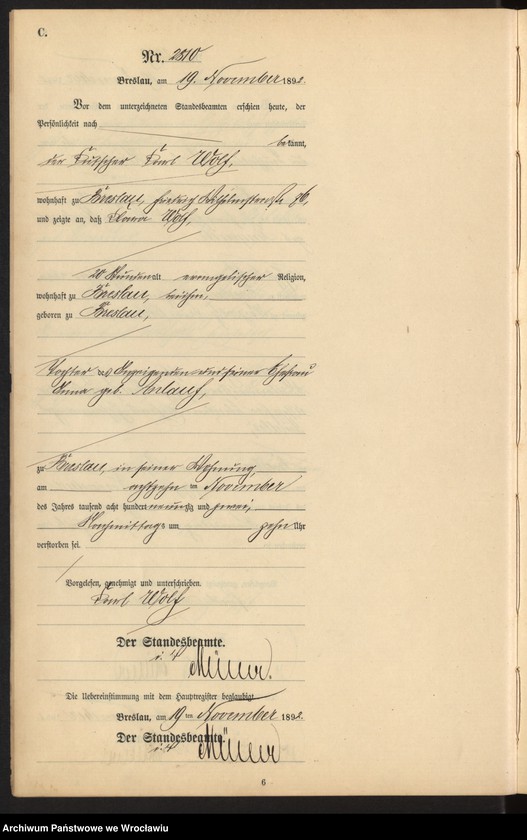 C.
Nr. 2810
Breslau, am 19. November 1892.
Vor dem unterzeichneten Standesbeamten erschien heute, der
Persönlichkeit nach
bekannt,
der Kutscher Karl Wolf,
wohnhaft zu Breslau, Friedrich Wilhelmstraße 76,
und zeigte an, daß Klara Wolf,
20 Stunden alt evangelischer Religion,
wohnhaft zu Breslau, bei ihm,
geboren zu Breslau,
Tochter des Anzeigenden und seiner Ehefrau
Anna geb. Anlauf,
zu Breslau, in seiner Wohnung,
am achtzehn ten November
des Jahres tausend acht hundert neunzig und zwei,
Nachmittags um zehn Uhr
verstorben sei.
Vorgelesen, genehmigt und unterschrieben.
Karl Wolf
Der Standesbeamte.
i. V.
Die Uebereinstimmung mit dem Hauptregister beglaubigt
Breslau, am 19 ten November 1892.
Der Standesbeamte.
i. V.
6
Archiwum Państwowe we Wrocławiu